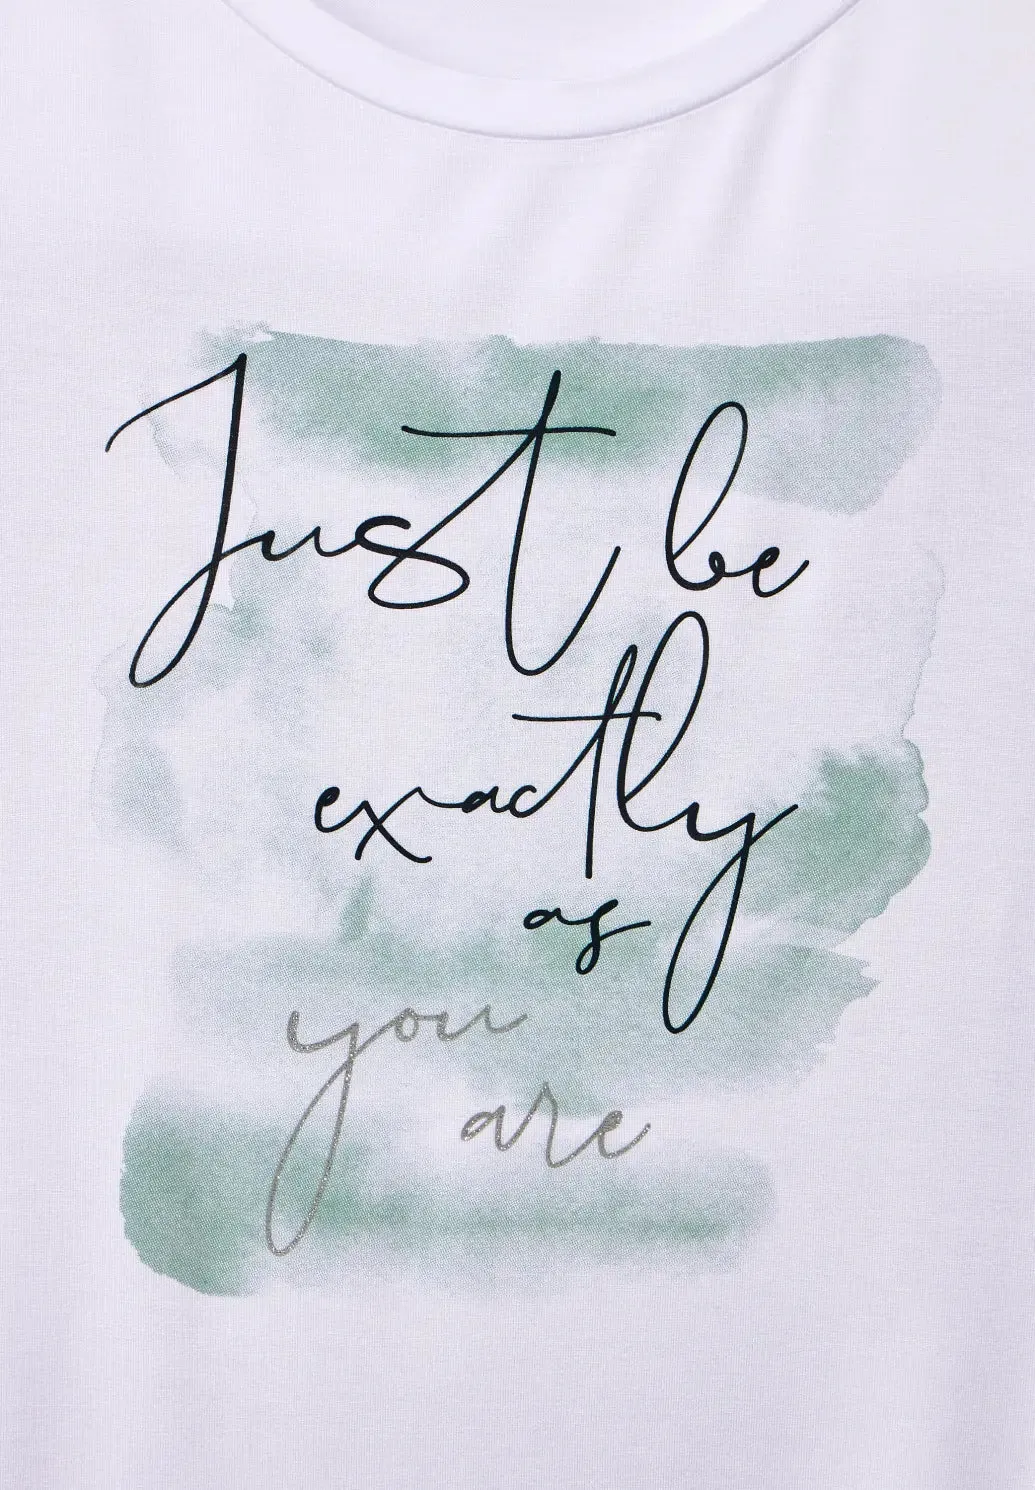 Just be
exactly
as
you
are